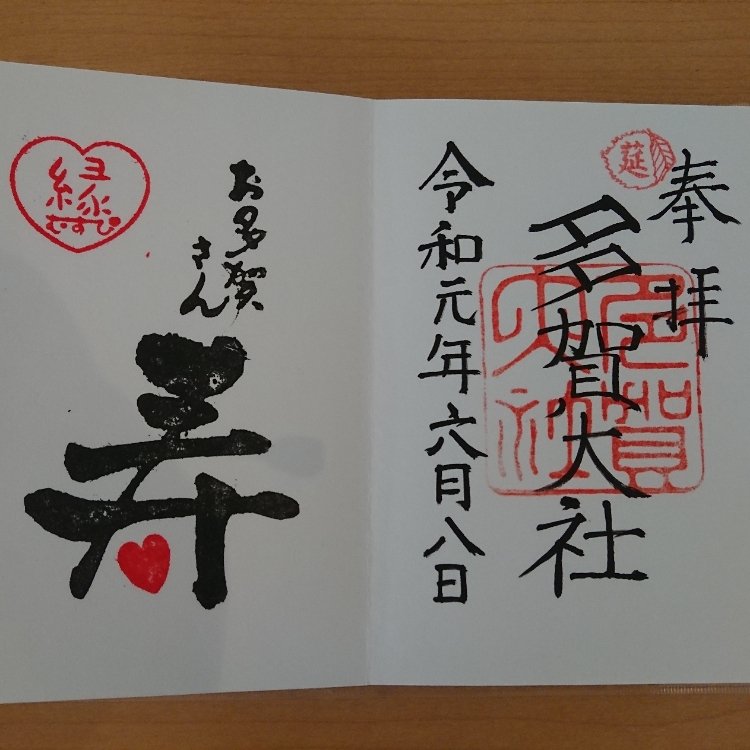 奉拝
莚
多賀大社
多賀大社
令和元年六月八日
お多賀
さん
寿
縁
むすび